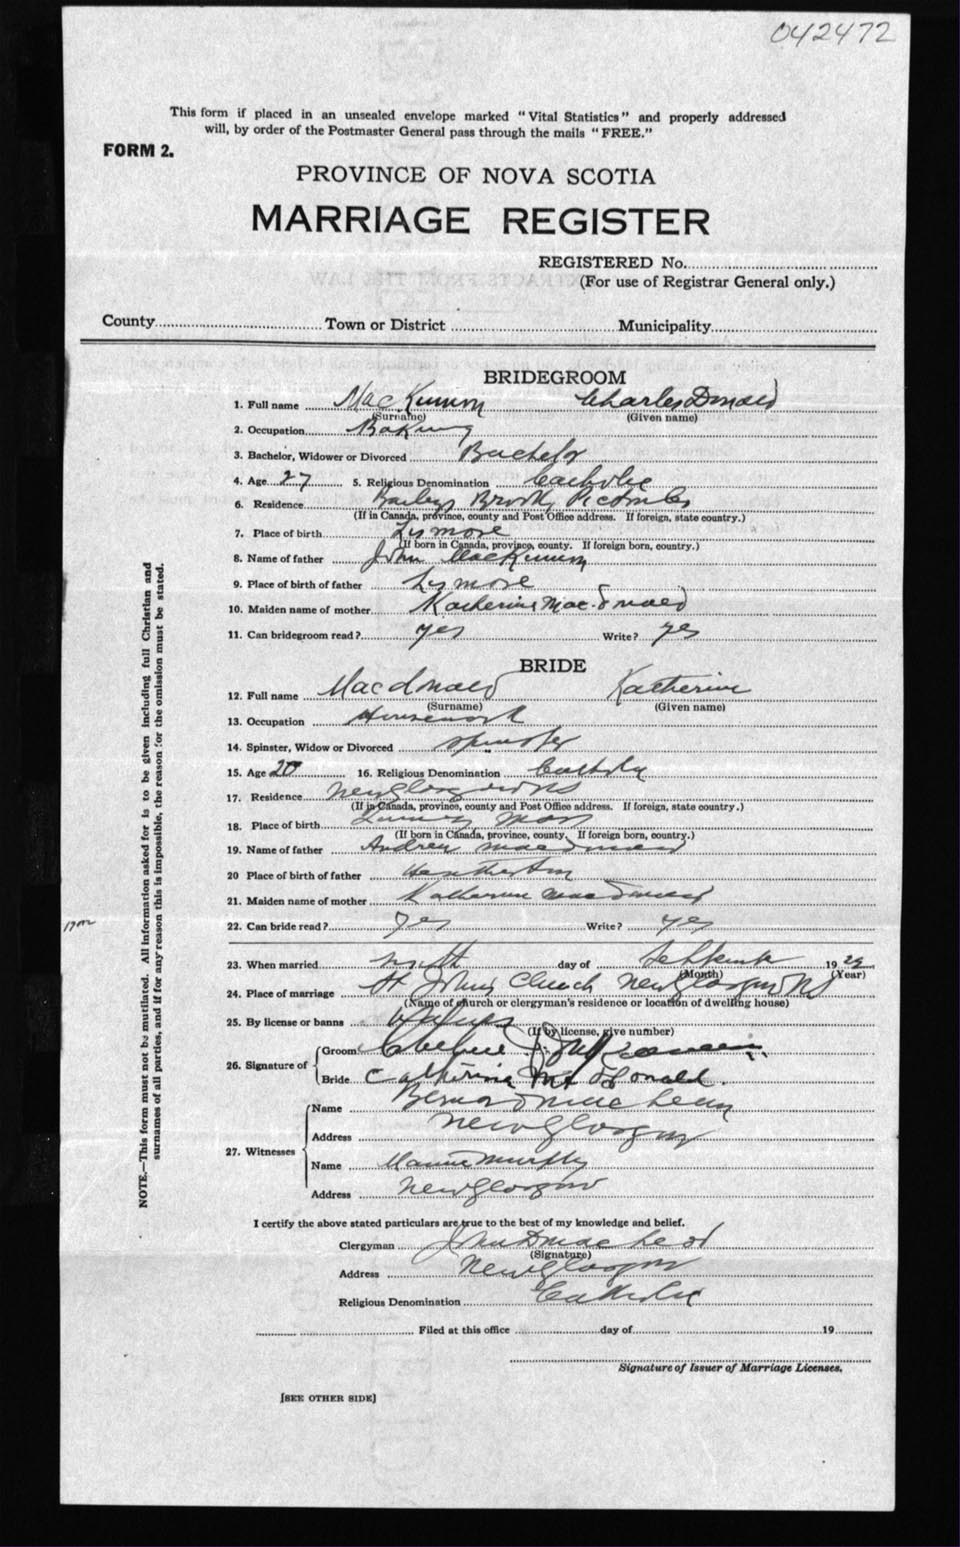 042472
This form if placed in an unsealed envelope marked "Vital Statistics" and properly addressed
will, by order of the Postmaster General pass through the mails "FREE."
FORM 2.
PROVINCE OF NOVA SCOTIA
MARRIAGE REGISTER
REGISTERED No.
(For use of Registrar General only.)
County Town or District Municipality
BRIDEGROOM
1. Full name MacKinnon Charles Donald
(Surname) (Given name)
2. Occupation Baking
3. Bachelor, Widower or Divorced Bachelor
4. Age 27 5. Religious Denomination Catholic
6. Residence Baileys Brook, Pictou Co
(If in Canada, province, county and Post Office address. If foreign, state country.)
7. Place of birth Lismore
(If born in Canada, province, county. If foreign born, country.)
8. Name of father John MacKinnon
9. Place of birth of father Lismore
10. Maiden name of mother Katherine MacDonald
11. Can bridegroom read? yes Write? yes
BRIDE
12. Full name Macdonald Katherine
(Surname) (Given name)
13. Occupation Housework
14. Spinster, Widow or Divorced Spinster
15. Age 20 16. Religious Denomination Catholic
17. Residence New Glasgow NS
(If in Canada, province, county and Post Office address. If foreign, state country.)
18. Place of birth Mass
(If born in Canada, province, county. If foreign born, country.)
19. Name of father Andrew MacDonald
20 Place of birth of father Heatherton
21. Maiden name of mother Katherine MacDonald
22. Can bride read? yes Write? yes
23. When married ninth day of September 19 29
(Month) (Year)
24. Place of marriage St Johns Church New Glasgow NS
(Name of church or clergyman's residence or location of dwelling house)
25. By license or banns
(If by license, give number)
26. Signature of Groom
Bride Catherine McDonald.
27. Witnesses Name Bernard MacLean
Address New Glasgow
Name Mamie Murphy
Address New Glasgow
I certify the above stated particulars are true to the best of my knowledge and belief.
Clergyman John D MacLeod
(Signature)
Address New Glasgow
Religious Denomination Catholic
Filed at this office day of 19
Signature of Issuer of Marriage Licenses.
[SEE OTHER SIDE]
NOTE.—This form must not be mutilated. All information asked for is to be given including full Christian and
surnames of all parties, and if for any reason this is impossible, the reason for the omission must be stated.